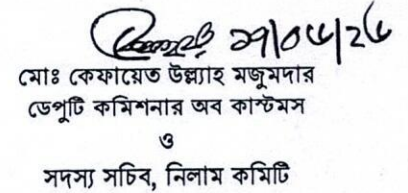 মোঃ কেফায়েত উল্ল্যাহ মজুমদার
ডেপুটি কমিশনার অব কাস্টমস
ও
সদস্য সচিব, নিলাম কমিটি